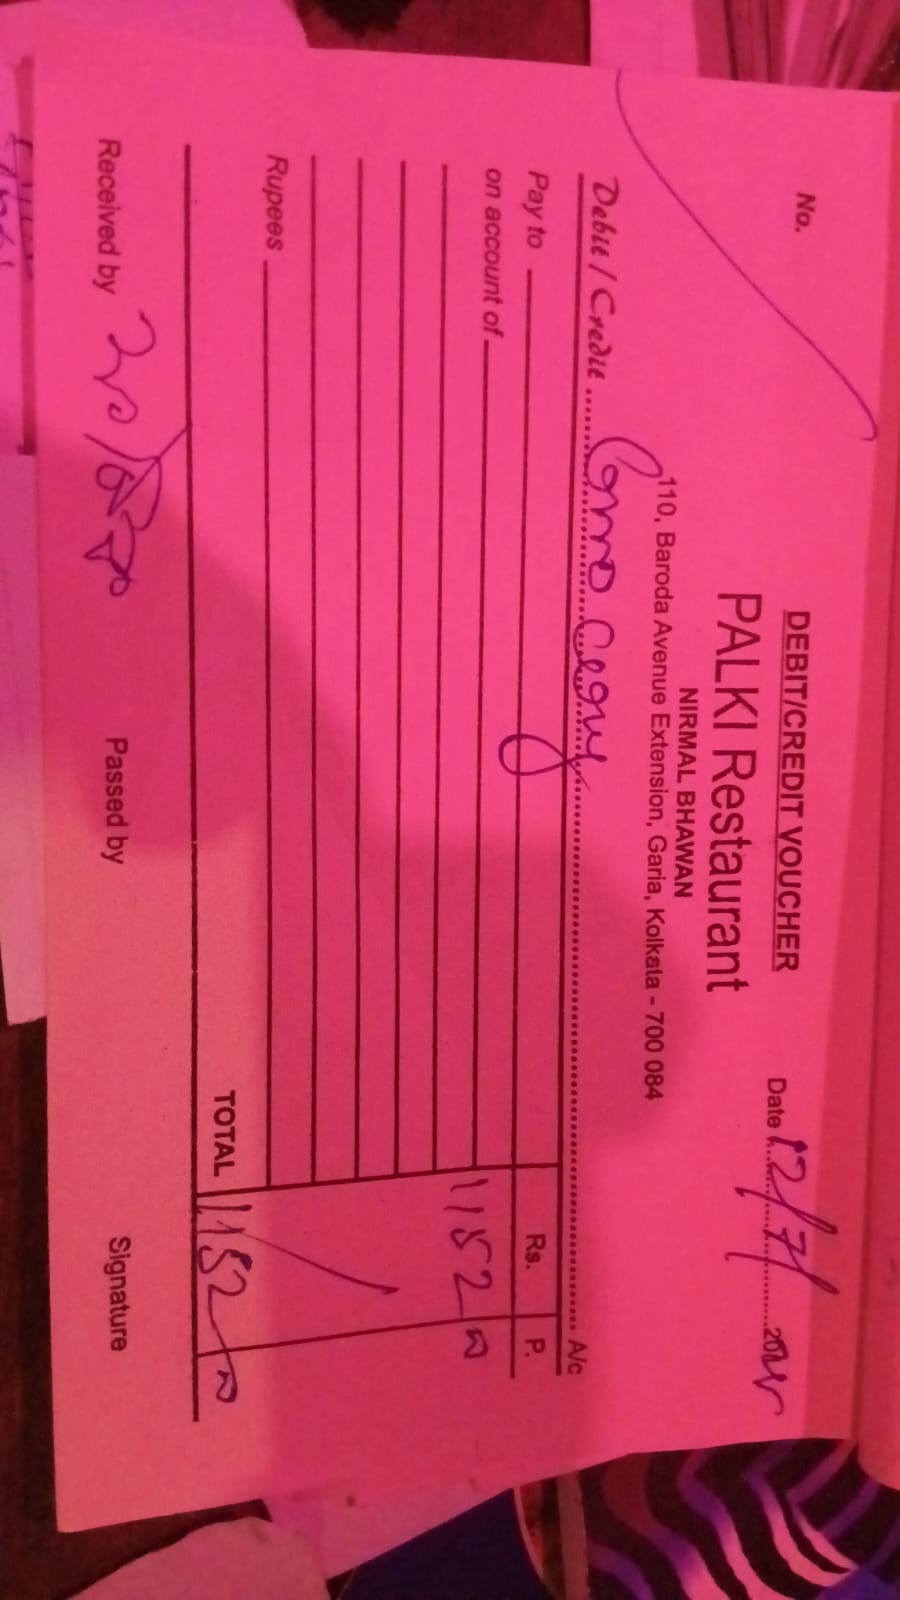 DEBIT/CREDIT VOUCHER
No.
Date 12/7/
PALKI Restaurant
NIRMAL BHAWAN
110, Baroda Avenue Extension, Garia, Kolkata - 700 084
Debit / Credit A/c
Pay to Rs. P.
on account of 1152
Rupees
TOTAL 1152
Received by Passed by Signature